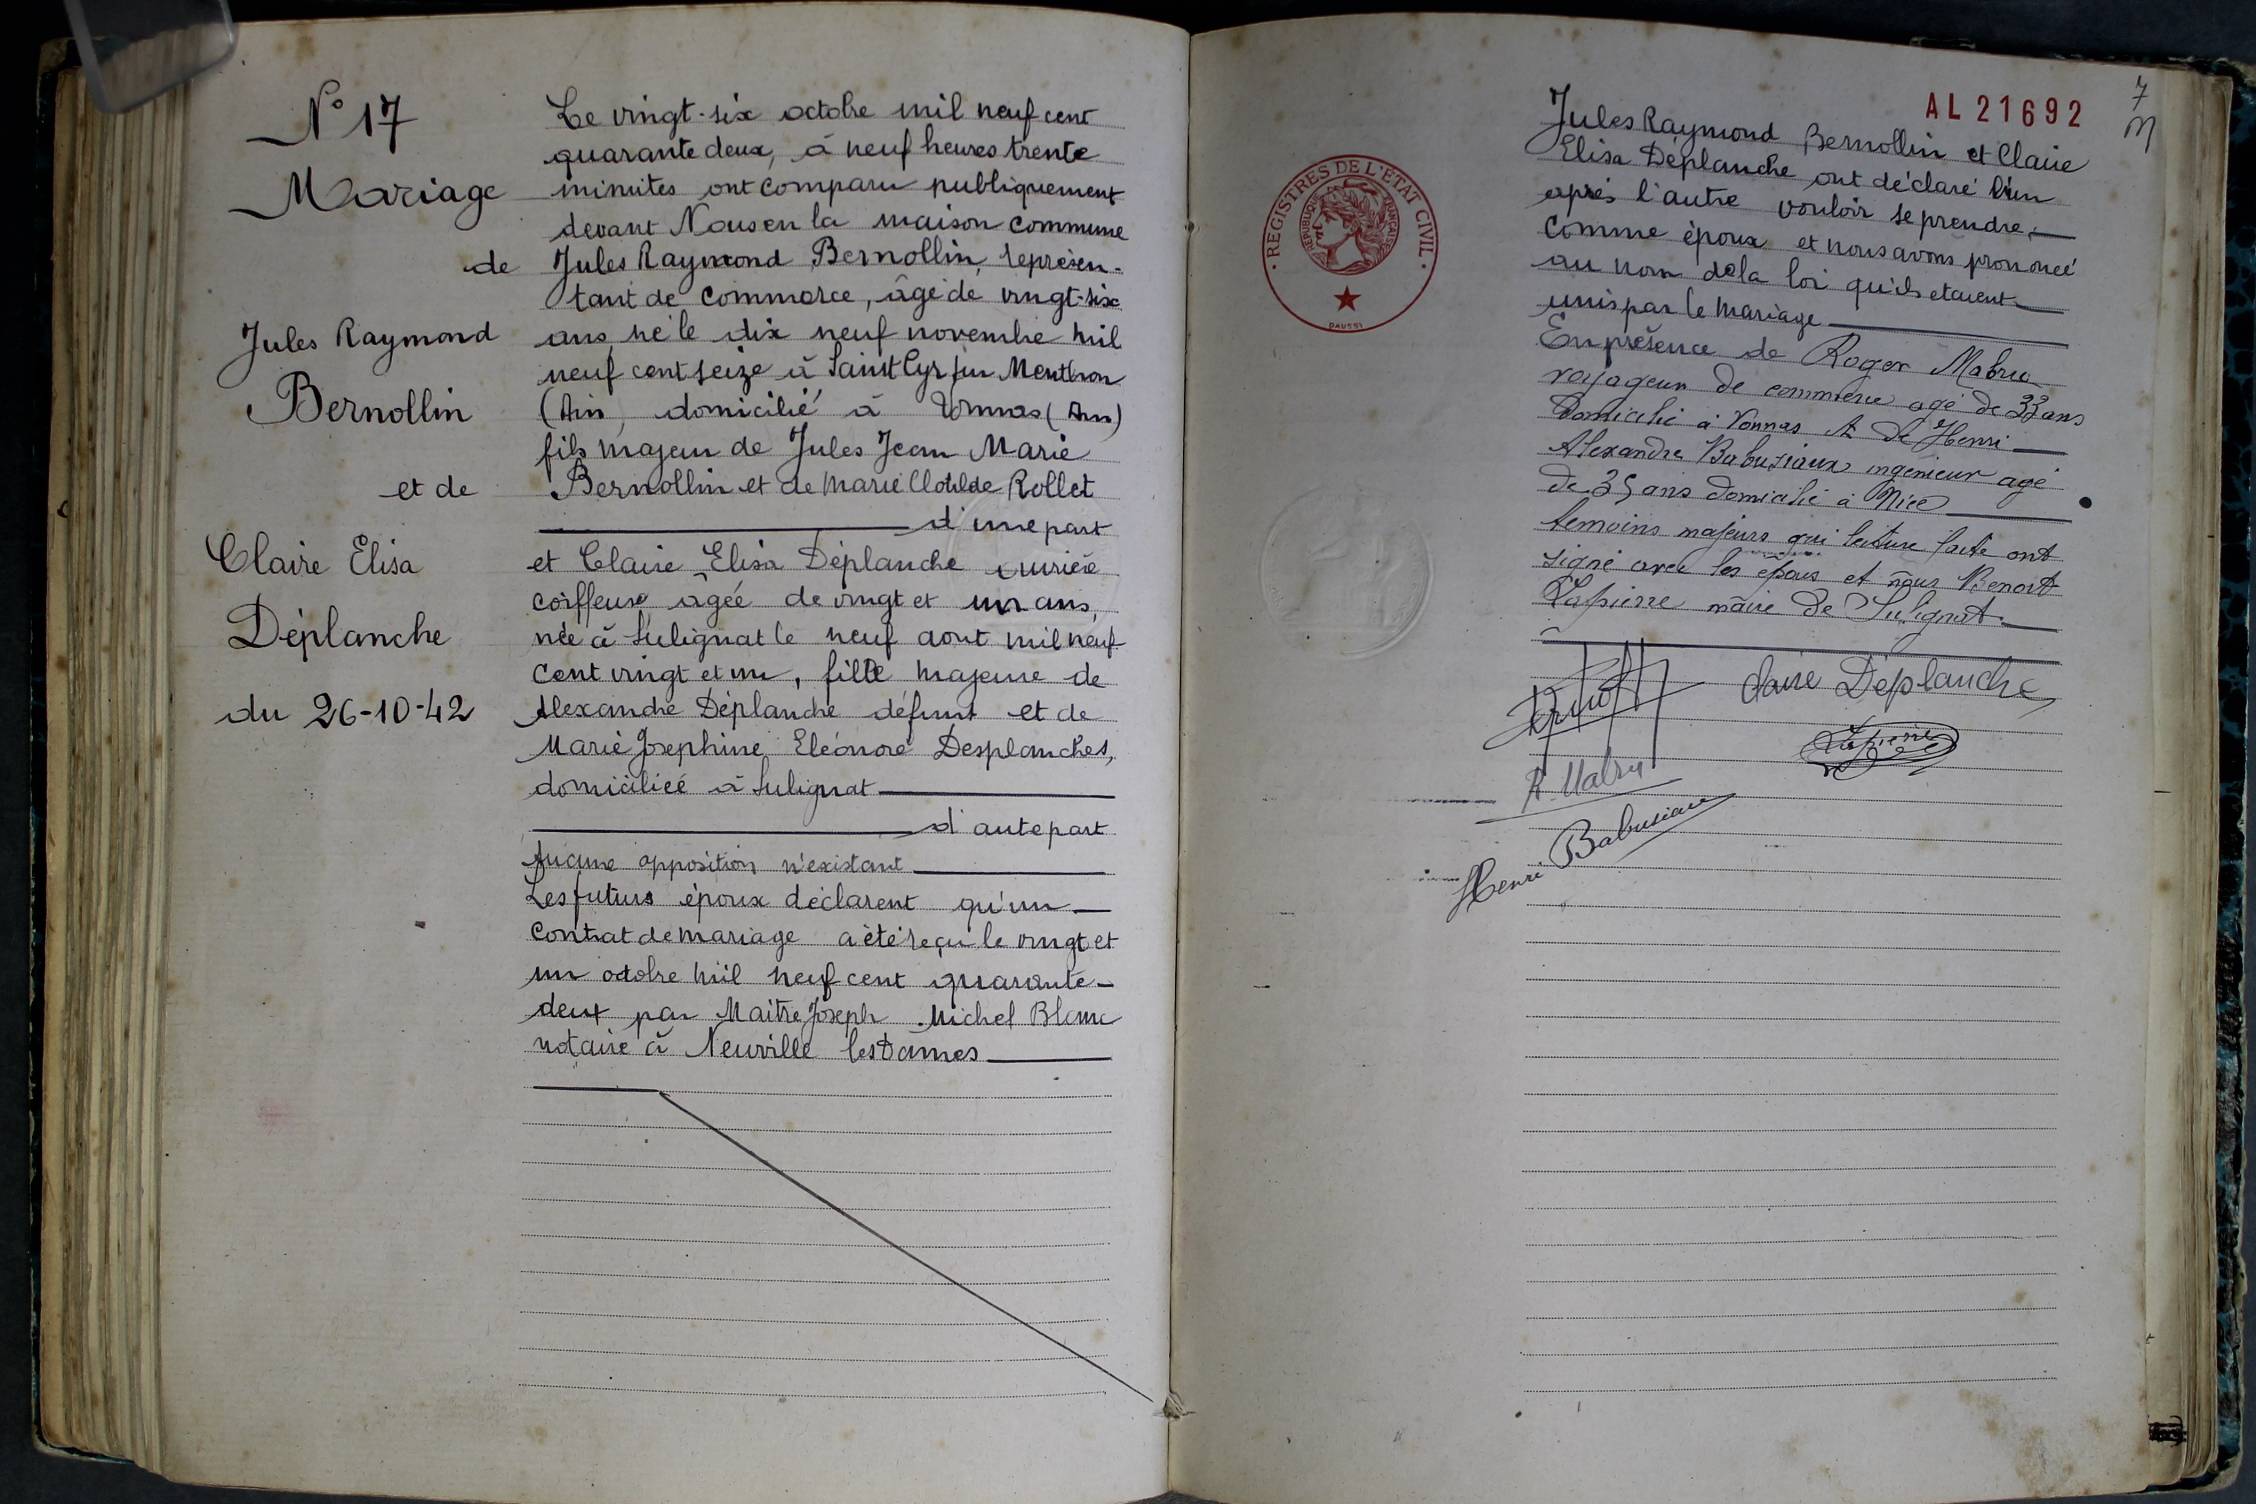 N° 17
Mariage
de
Jules Raymond
Bernollin
et de
Claire Elisa
Déplanche
du 26-10-42
Le vingt-six octobre mil neuf cent
quarante deux, à neuf heures trente
minutes ont comparu publiquement
devant Nous en la maison commune
Jules Raymond Bernollin, représen-
tant de commerce, âgé de vingt-six
ans, né le dix neuf novembre mil
neuf cent seize à Saint Cyr sur Menthon
(Ain, domicilié à Vonnas (Ain)
fils majeur de Jules Jean Marie
Bernollin et de Marie Clotilde Rollet
d'une part
et Claire Elisa Déplanche ouvrière
coiffeuse agée de vingt et un ans,
née à Sulignat le neuf aout mil neuf
cent vingt et un, fille majeure de
Alexandre Déplanche défunt et de
Marie Josephine Eléonore Desplanches,
domiciliée à Sulignat
d'autepart
Aucune opposition n'existant
Les futurs époux déclarent qu'un
contrat de mariage a été reçu le vingt et
un octobre mil neuf cent quarante-
deux par Maitre Joseph Michel Blanc
notaire à Neuville les Dames
AL 21692
7
M
REGISTRES DE L'ETAT CIVIL
REPUBLIQUE FRANÇAISE
DAUSSI
Jules Raymond Bernollin et Claire
Elisa Déplanche ont déclaré l'un
après l'autre vouloir se prendre
comme époux et nous avons prononcé
au nom de la loi qu'ils etaient
unis par le mariage
En présence de Roger Mabru
voyageur de commerce agé de 33 ans
domicilié à Vonnas et de Henri
Alexandre Babusiaux ingénieur agé
de 35 ans domicilié à Nice
temoins majeurs qui lecture faite ont
signé avec les époux et nous Benoit
Lapierre maire de Sulignat.
Claire Déplanche
Lapierre
R. Mabru
Henri Babusiaux